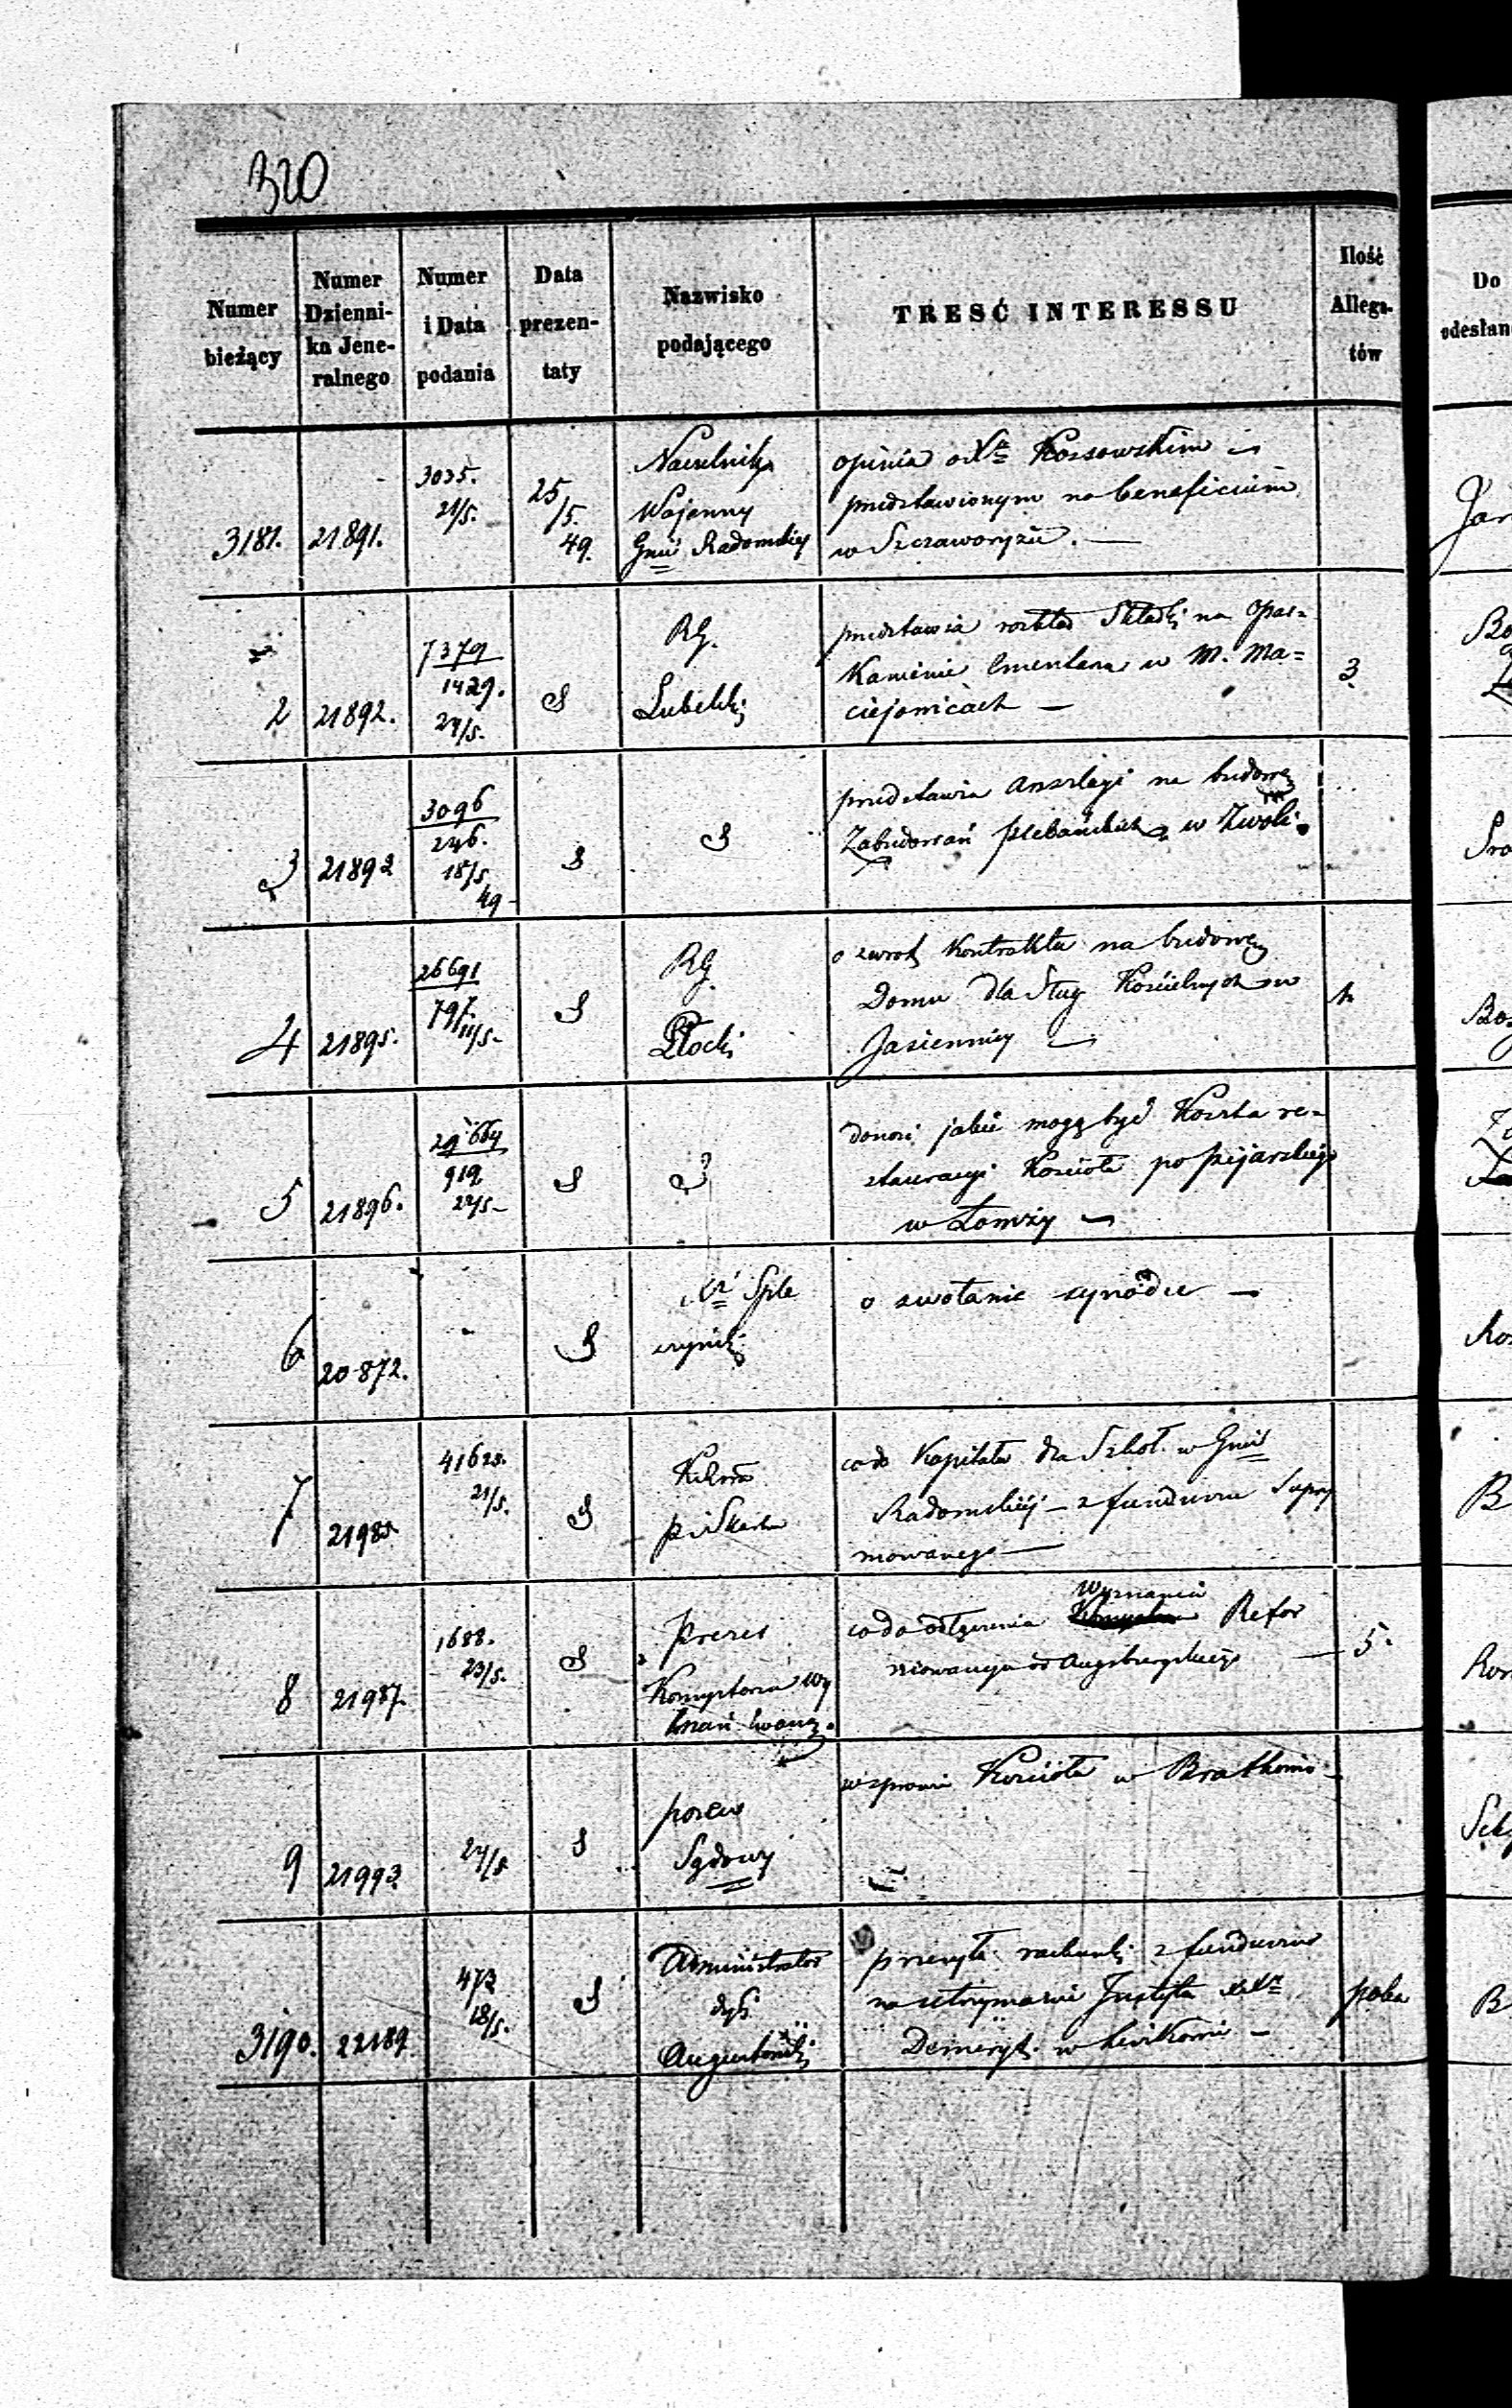 320
Numer
bieżący
Numer
Dzienni-
ka Jene-
ralnego
Numer
i Data
podania
Data
prezen-
taty
Nazwisko
podającego
TRESĆ INTERESSU
Ilość
Allega-
tów
Do
odesłan
3181. 21891.
3035.
21/5.
25
/5.
49.
Naczelnik
Wojenny
Gnii Radomskiej
opinia o Xu Kossowskim
przedstawionym na beneficium
w Szczaworyżu. —
2 21892.
7379
1429.
24/5.
RG.
Lubelski
przedstawia rozkład Składki na Opar=
Kanienie Cmentarza w M. Ma=
ciejowicach —
3.
3 21892
3096
246.
18/5
49-
przedstawia Anszlagi na budowę
Zabudowań plebańskich w Zwoli
4 21895.
26691
797.
11/5-
RG.
Płocki
o zwrot Kontraktu na budowę
Domu dla Sług Kościelnych w
Jasiennicy —
5 21896.
29664
919
24/5-
donosi jakie mogą być Koszta re-
stauracyi Kościoła po pijarskiego
w Łomży —
6 20872.
o zwołanie synodu —
7 21985
41623.
21/5.
co do Kapitału dla Szkoł w Gnii
Radomskiej — z funduszu Supry
mowanego —
8 21987.
1688.
23/5.
Prezes
Konsystorza Wy
znań Ewang.
Wyznania
co do odłączenia Refor
mowanego od Augsburgskiego — 5.
9 21993.
24/5
pozew
Sądowy
w sprawie Kościoła w
3190. 22189
473
18/5.
Administrator
dyec.
Augustowski
przesyła rachunki z funduszu
na utrzymanie Instytu XXy
Demeryt. w